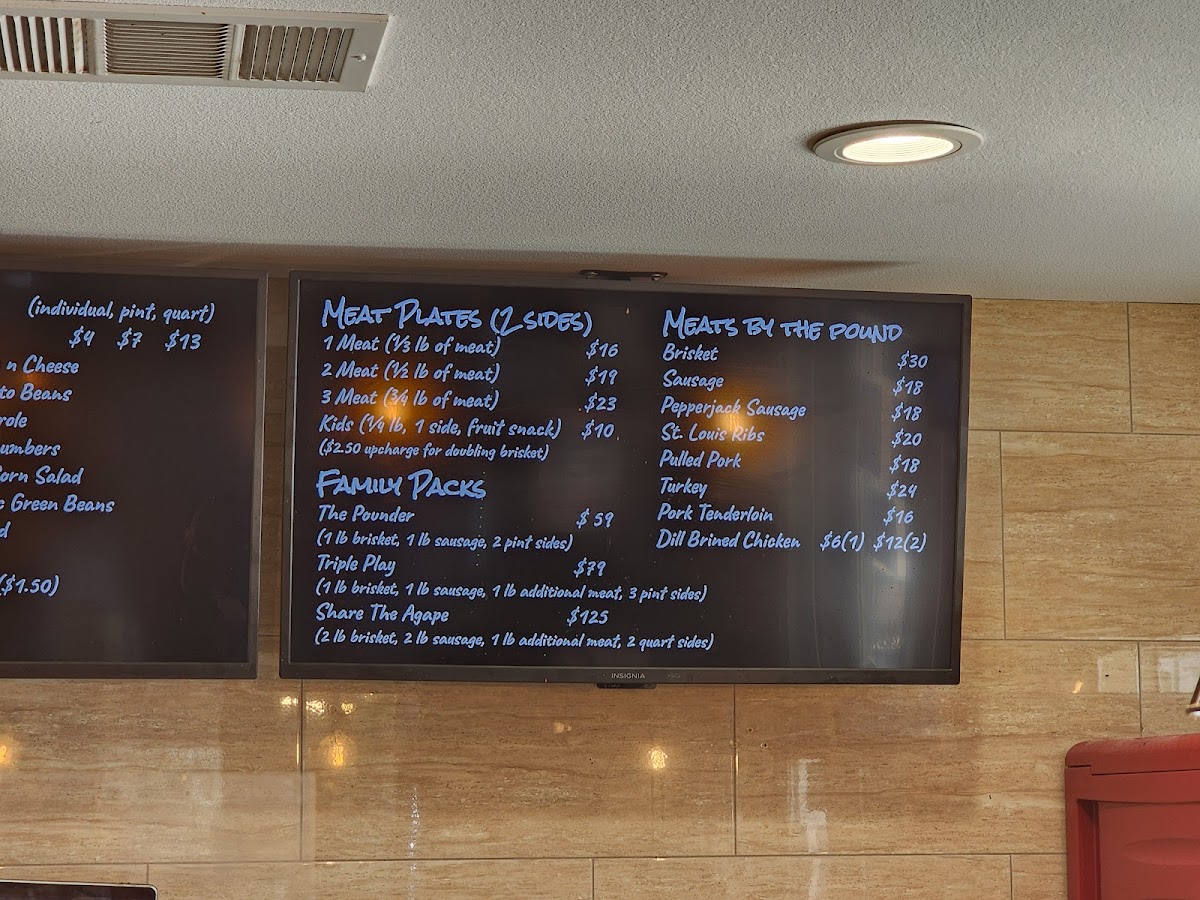 (individual, pint, quart)
$4 $7 $13
n Cheese
to Beans
role
umbers
orn Salad
c Green Beans
d
($1.50)
Meat Plates (2 sides)
1 Meat (⅓ lb of meat) $16
2 Meat (½ lb of meat) $19
3 Meat (¾ lb of meat) $23
Kids (¼ lb, 1 side, fruit snack) $10
($2.50 upcharge for doubling brisket)
Family Packs
The Pounder $59
(1 lb brisket, 1 lb sausage, 2 pint sides)
Triple Play $79
(1 lb brisket, 1 lb sausage, 1 lb additional meat, 3 pint sides)
Share The Agape $125
(2 lb brisket, 2 lb sausage, 1 lb additional meat, 2 quart sides)
Meats by the pound
Brisket $30
Sausage $18
Pepperjack Sausage $18
St. Louis Ribs $20
Pulled Pork $18
Turkey $24
Pork Tenderloin $16
Dill Brined Chicken $6(1) $12(2)
INSIGNIA